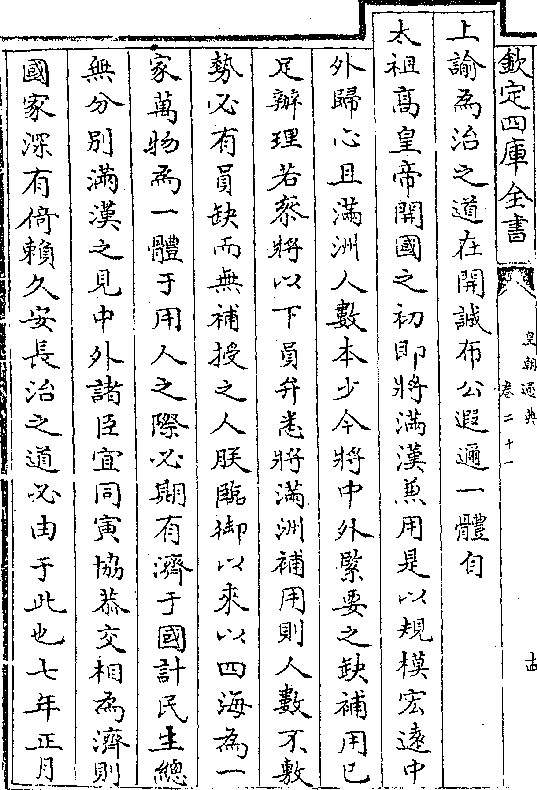 欽定四庫全書
皇朝通典
卷二十一
十四
上諭為治之道在開誠布公遐邇一體自
太祖髙皇帝開國之初即將滿漢兼用是以規模宏遠中
外歸心且滿洲人數本少今將中外緊要之缺補用已
足辦理若叅將以下員弁悉將滿洲補用則人數不敷
勢必有員缺而無補授之人朕臨御以來以四海為一
家萬物為一體于用人之際必期有濟于國計民生總
無分别滿漢之見中外諸臣宜同寅協恭交相為濟則
國家深有倚賴久安長治之道必由于此也七年正月